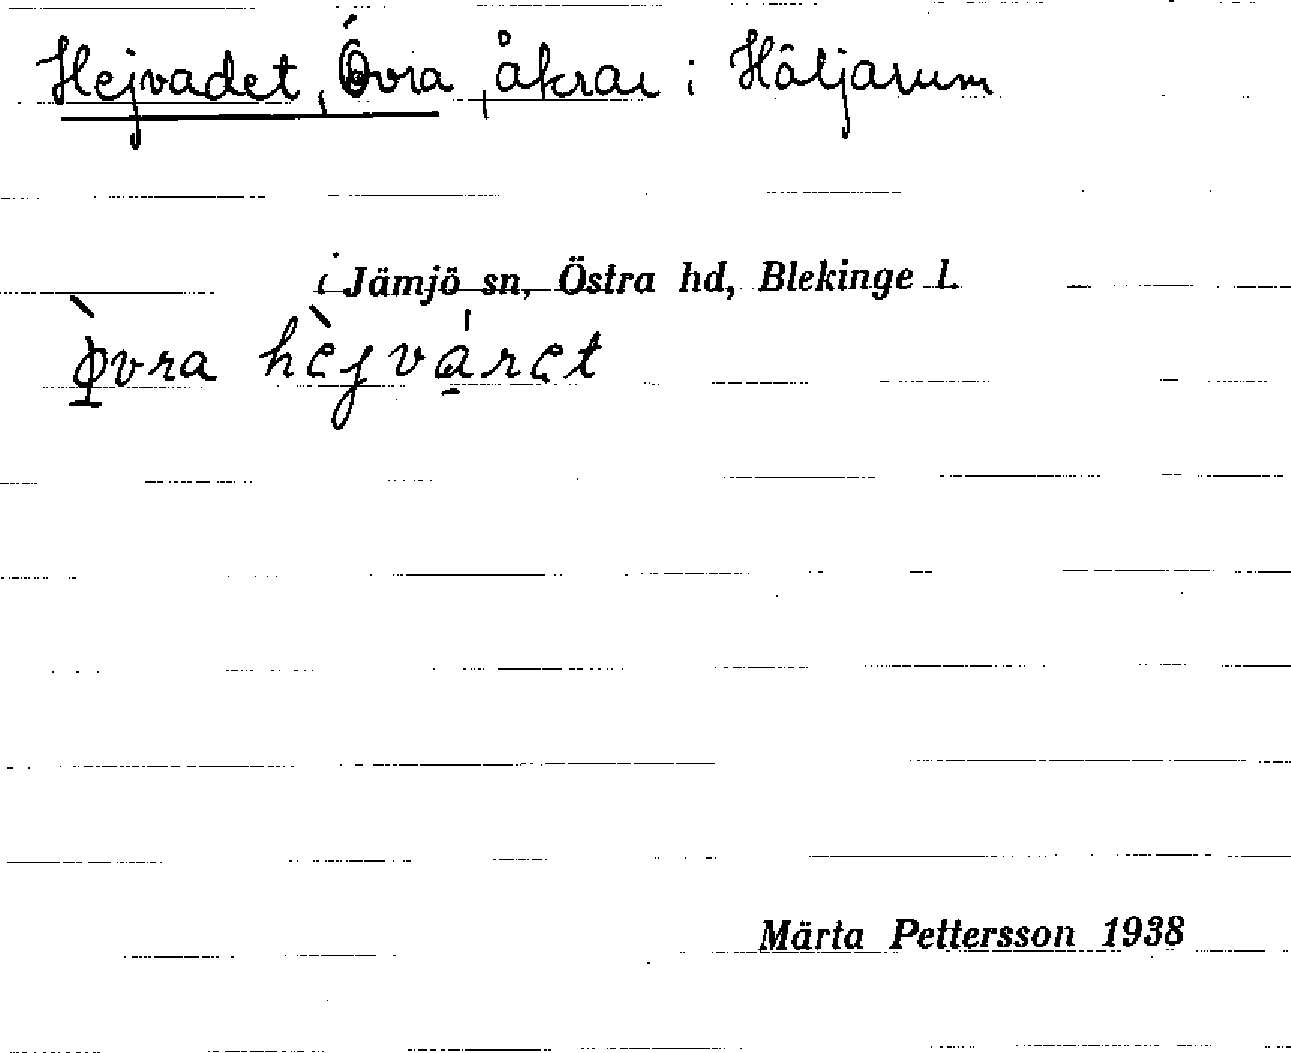 Hejvadet, Övra, åkrar i Häljarum
i Jämjö sn, Östra hd, Blekinge l.
ø̀vra hèjvάret
Märta Pettersson 1938